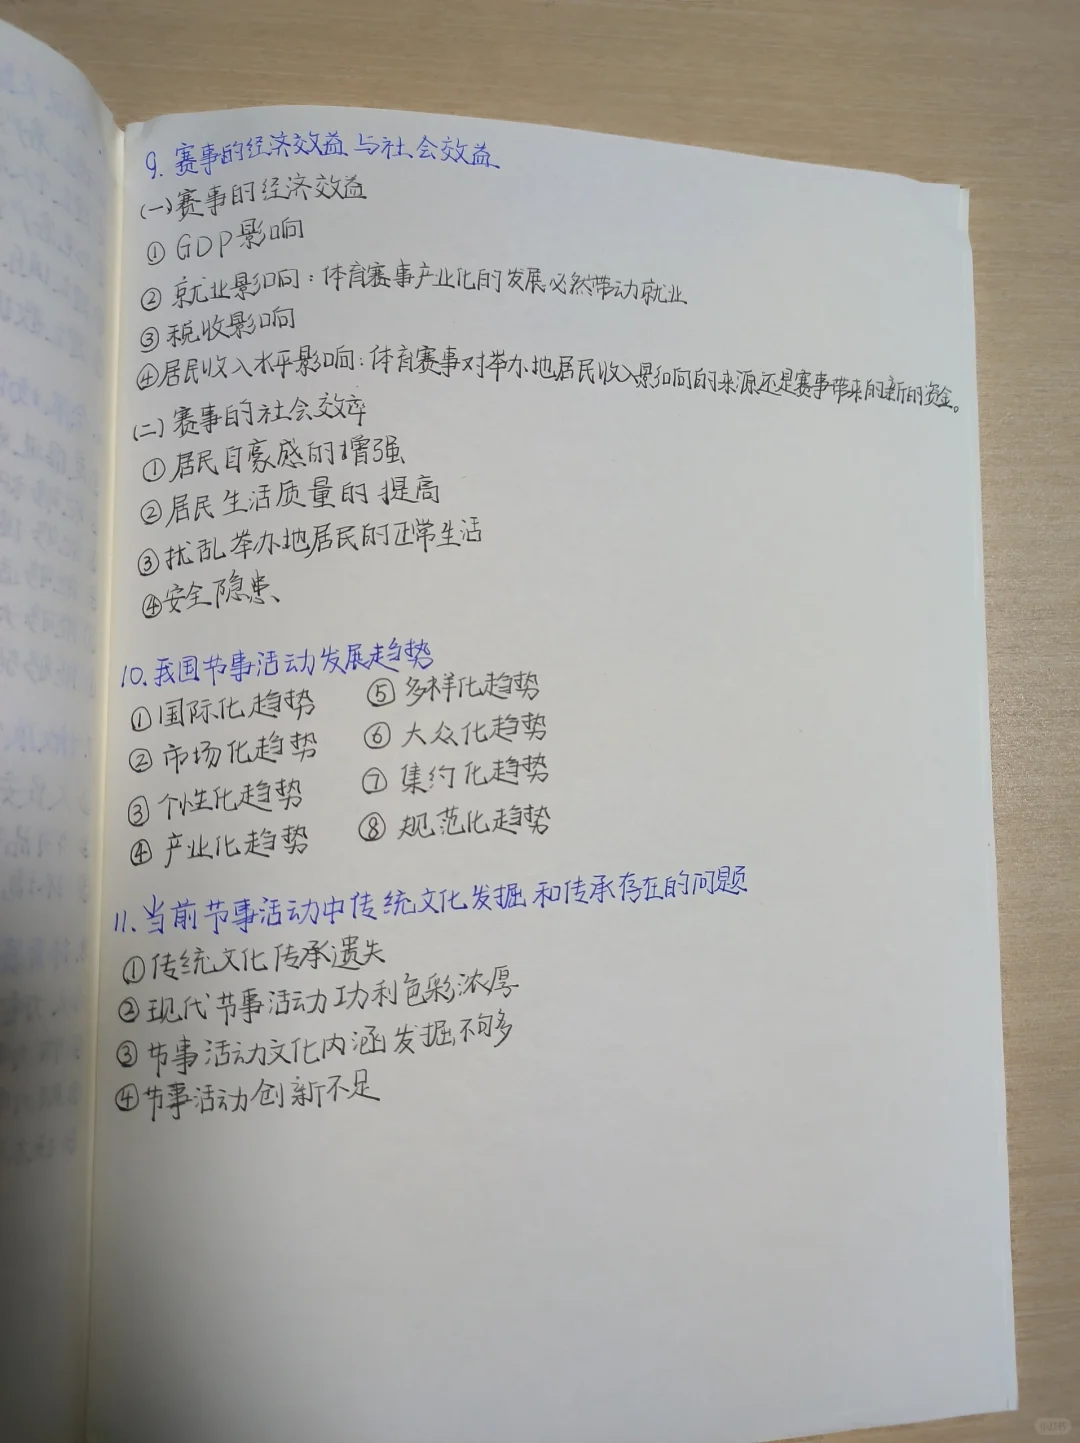 9. 赛事的经济效益与社会效益
(一)赛事的经济效益
① GDP影响
② 就业影响：体育赛事产业化的发展必然带动就业
③ 税收影响
④居民收入水平影响：体育赛事对举办地居民收入影响的来源还是赛事带来的新的资金。
(二) 赛事的社会效率
① 居民自豪感的增强
② 居民生活质量的提高
③ 扰乱举办地居民的正常生活
④安全隐患、
10. 我国节事活动发展趋势
①国际化趋势 ⑤多样化趋势
② 市场化趋势 ⑥ 大众化趋势
③ 个性化趋势 ⑦ 集约化趋势
④ 产业化趋势 ⑧ 规范化趋势
11. 当前节事活动中传统文化发掘和传承存在的问题
①传统文化传承遗失
②现代节事活动功利色彩浓厚
③ 节事活动文化内涵发掘不够多
④节事活动创新不足